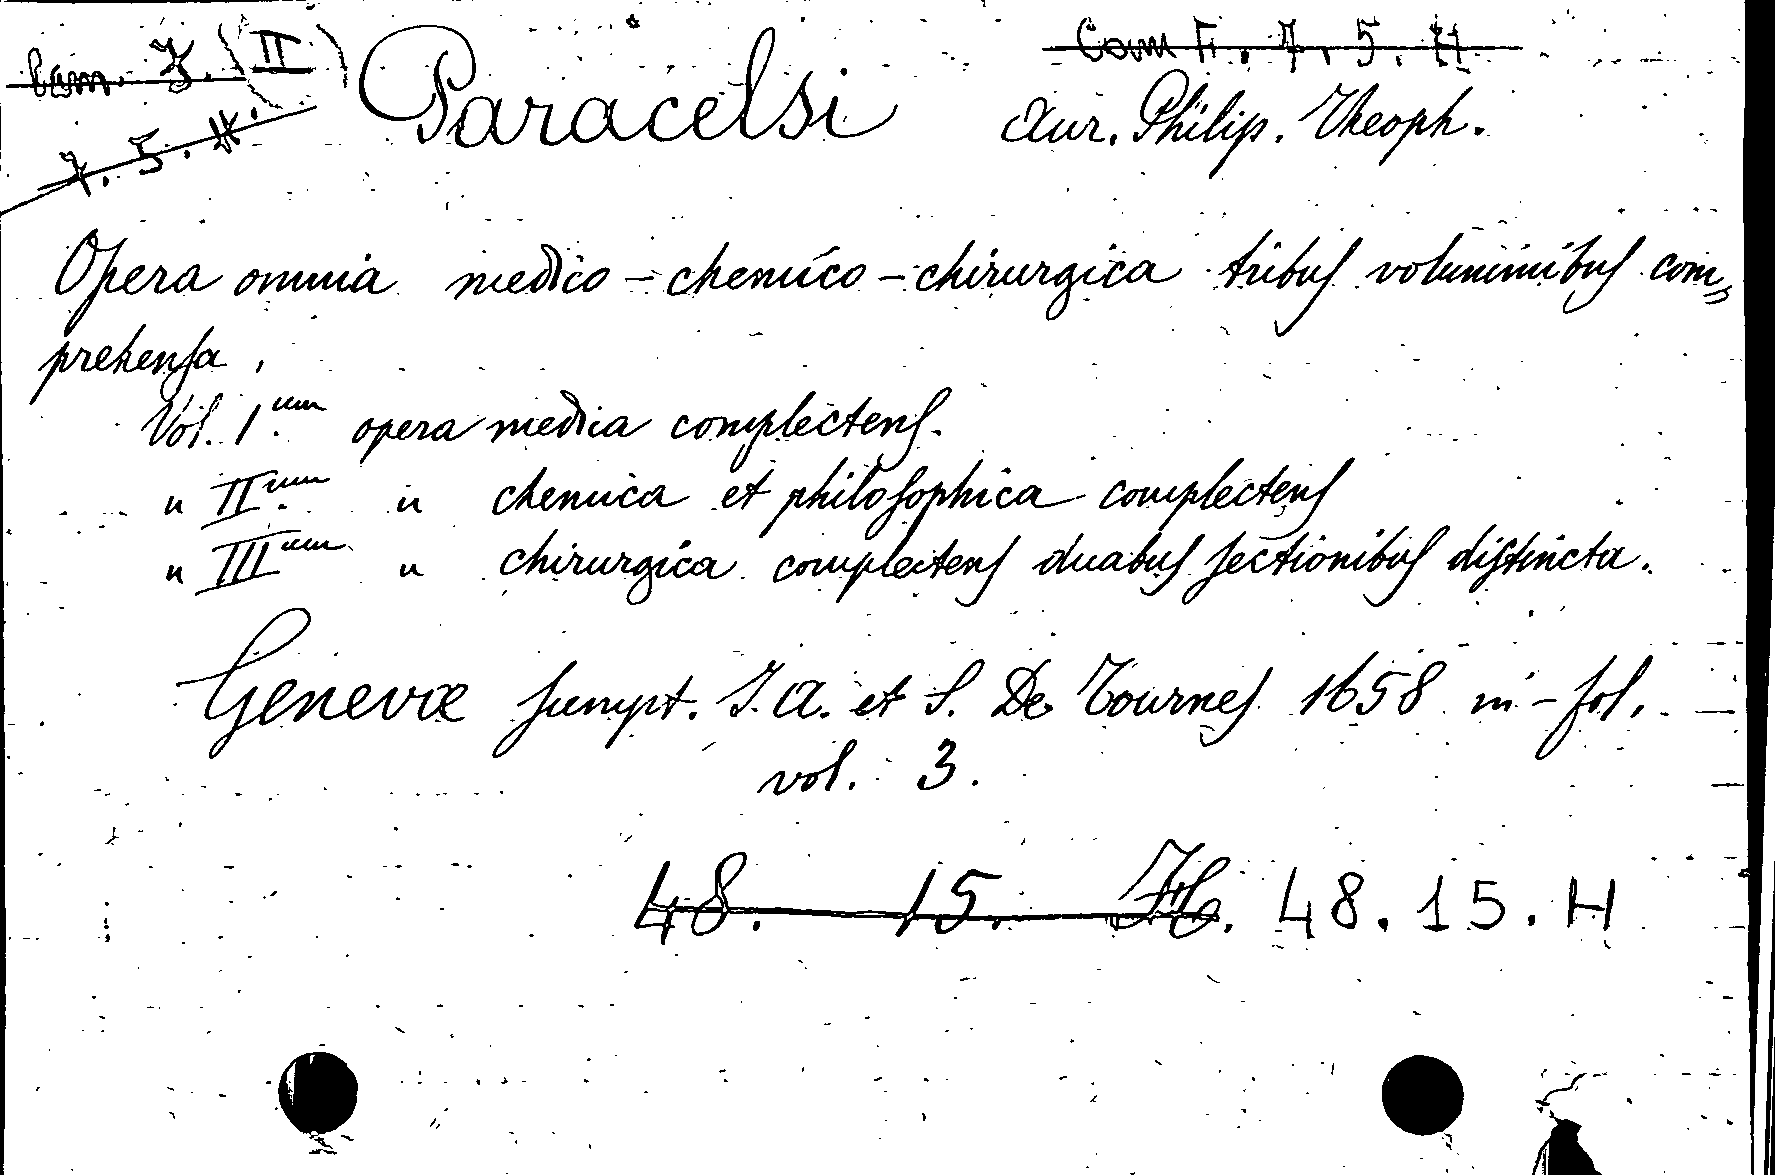 Cam. Z. (II) Paracelsi Cam F. 7. 5. H
7. 5. H. Aur. Philip. Theoph.
Opera omnia medico-chemico-chirurgica tribus voluminibus com„
prehensa.
Vol. I.um opera media complectens.
" II.um " chemica et philosophica complectens
" III um " chirurgica complectens duabus sectionibus distincta.
Genevæ sumpt. I. A. et S. De Tournes 1658 in-fol.
vol. 3.
48. 15. H. 48.15.H